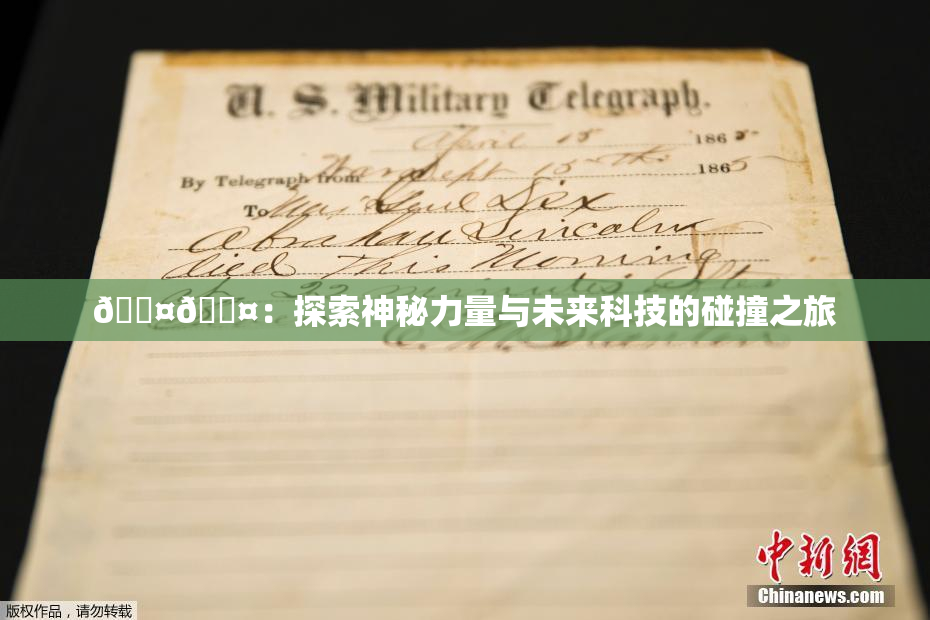 U. S. Military Telegraph.
April 15 1865
By Telegraph from War Dept 15th 1865
To Maj Genl Dix
Abraham Lincoln
died This Morning
at 22 minutes after
ð¤ð¤：探索神秘力量与未来科技的碰撞之旅
E. M. Stanton
中新网
Chinanews.com
版权作品，请勿转载